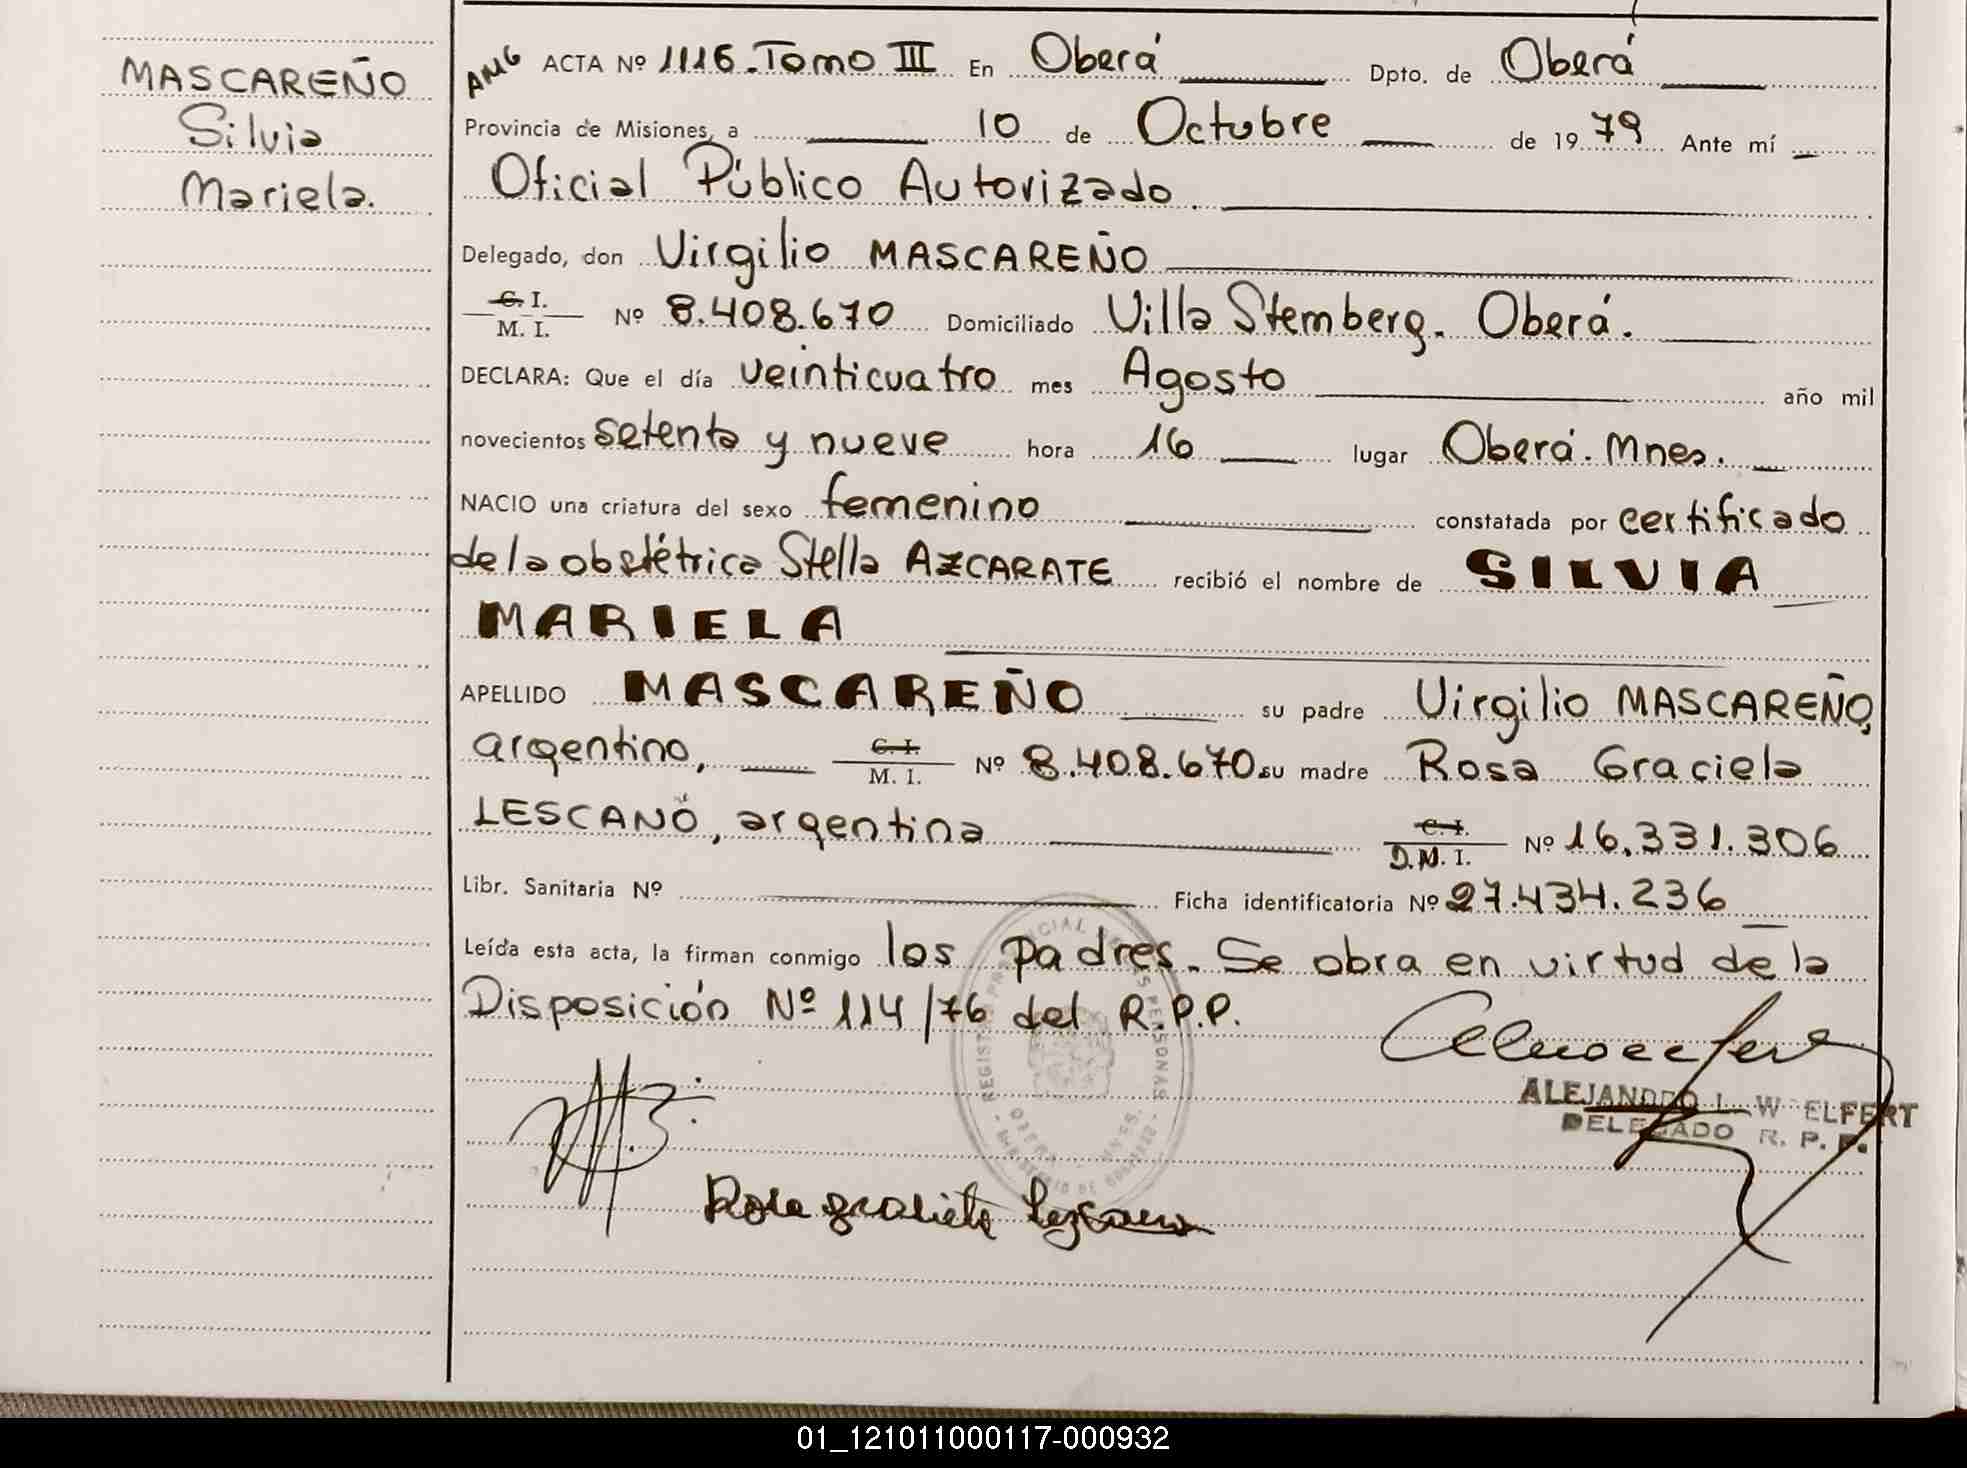 MASCAREÑO
Silvia
Mariela.
AMG ACTA Nº 1116.Tomo III En Oberá Dpto. de Oberá
Provincia de Misiones, a 10 de Octubre de 1979 Ante mí
Oficial Público Autorizado.
Delegado, don Virgilio MASCAREÑO
C. I.
M. I. Nº 8.408.670 Domiciliado Villa Stemberg. Oberá.
DECLARA: Que el día veinticuatro mes Agosto año mil
novecientos setenta y nueve hora 16 lugar Oberá. Mnes.
NACIO una criatura del sexo femenino constatada por certificado
de la obstétrica Stella AZCARATE recibió el nombre de SILVIA
MARIELA
APELLIDO MASCAREÑO su padre Virgilio MASCAREÑO,
argentino, C. I.
M. I. Nº 8.408.670 su madre Rosa Graciela
LESCANO, argentina C. I.
D.N. I. Nº 16.331.306
Libr. Sanitaria Nº Ficha identificatoria Nº 27.434.236
Leída esta acta, la firman conmigo los padres. Se obra en virtud de la
Disposición Nº 114/76 del R.P.P.
REGISTRO PROVINCIAL DE LAS PERSONAS
OBERA - MNES.
MINISTERIO DE GOBIERNO
ALEJANDRO L. WOELFERT
DELEGADO R. P. P.
Rosa graciela Lezcano
01_121011000117-000932